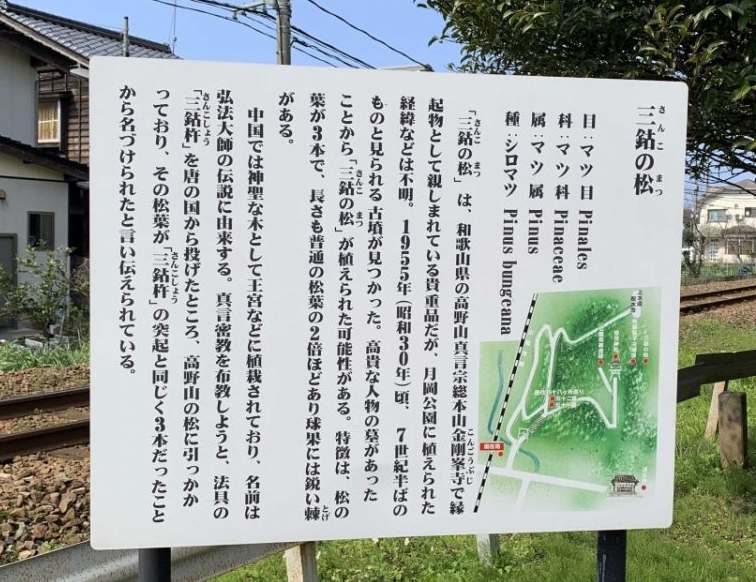 三鈷の松
さんこ まつ
目:マツ 目 Pinales
科:マツ 科 Pinaceae
属:マツ 属 Pinus
種:シロマツ Pinus bungeana
「三鈷の松」は、和歌山県の高野山真言宗総本山金剛峯寺で縁
さんこ まつ
こんごうぶじ
起物として親しまれている貴重品だが、月岡公園に植えられた
経緯などは不明。1955年(昭和30年)頃、7世紀半ばの
ものと見られる古墳が見つかった。高貴な人物の墓があった
ことから「三鈷の松」が植えられた可能性がある。特徴は、松の
さんこ まつ
葉が3本で、長さも普通の松葉の2倍ほどあり球果には鋭い棘
とげ
がある。
中国では神聖な木として王宮などに植栽されており、名前は
弘法大師の伝説に由来する。真言密教を布教しようと、法具の
「三鈷杵」を唐の国から投げたところ、高野山の松に引っかか
さんこしょう
っており、その松葉が「三鈷杵」の突起と同じく3本だったこと
さんこしょう
から名づけられたと言い伝えられている。